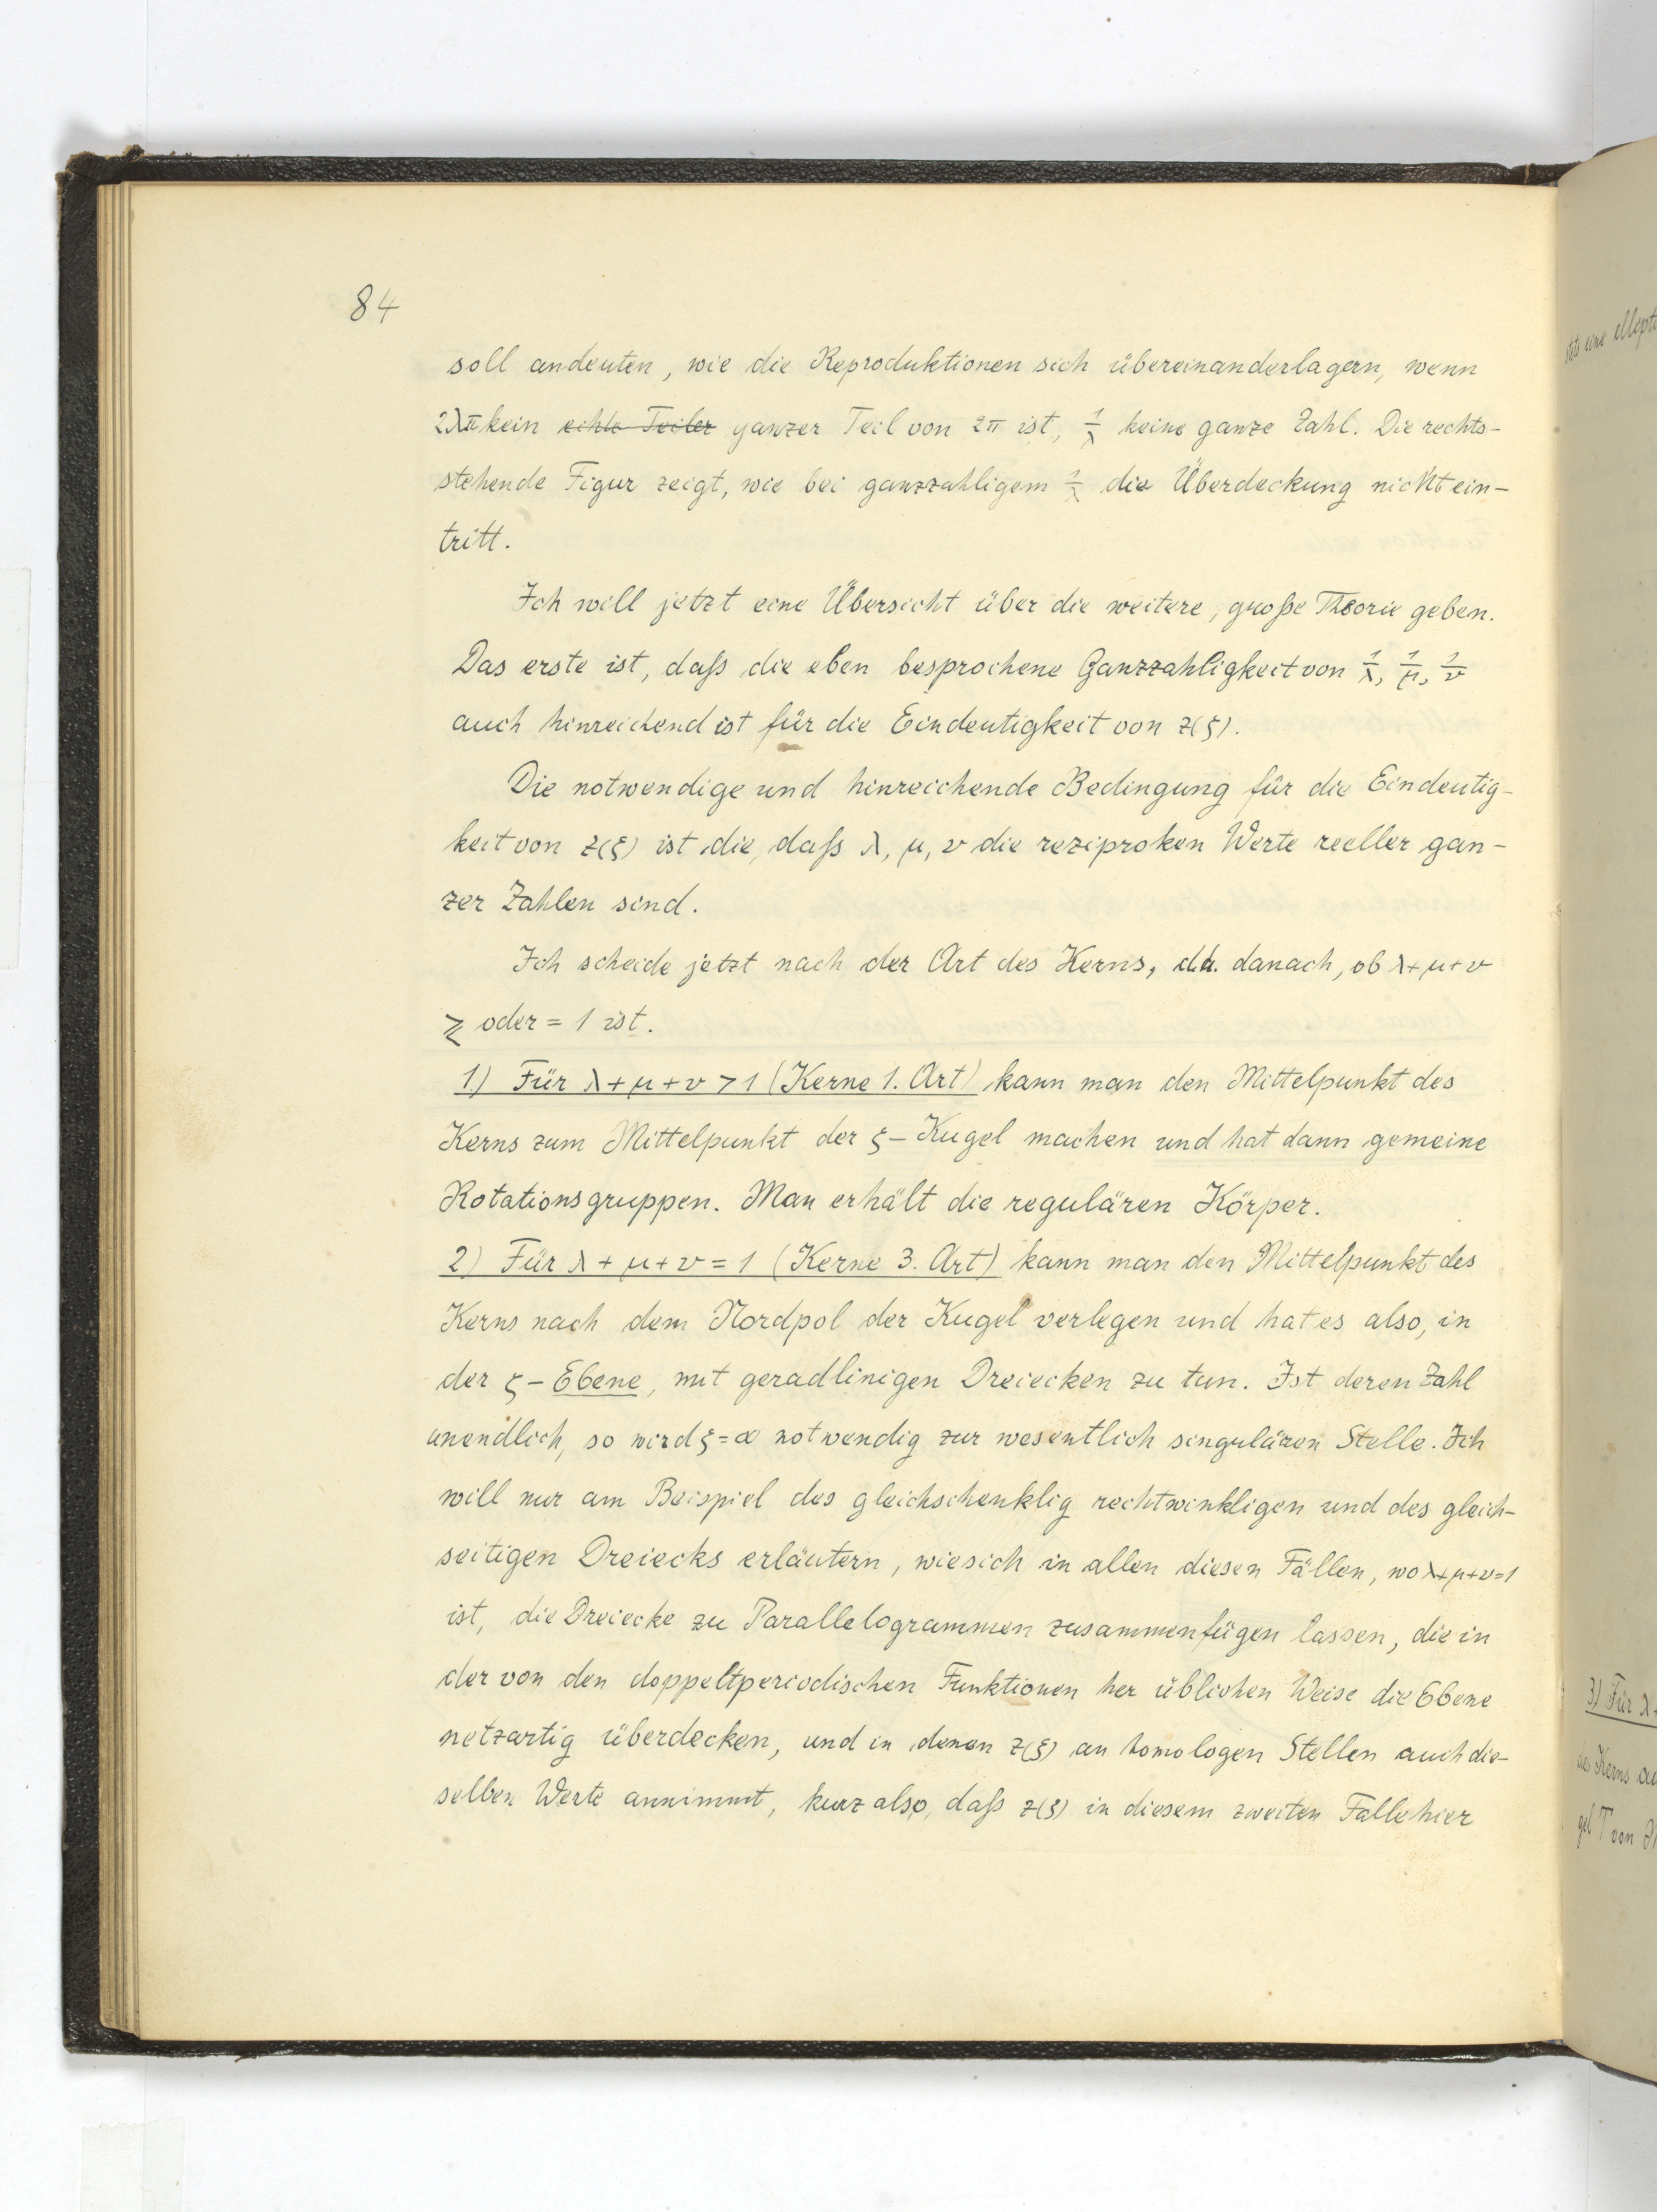 84
soll andeuten, wie die Reproduktionen sich übereinanderlagern, wenn
2λπ kein echte Teiler ganzer Teil von 2π ist, 1/λ keine ganze Zahl. Die rechts-
stehende Figur zeigt, wie bei ganzzahligem 1/λ die Überdeckung nicht ein-
tritt.
Ich will jetzt eine Übersicht über die weitere, große Theorie geben.
Das erste ist, daß die eben besprochene Ganzzahligkeit von 1/λ, 1/μ, 1/ν
auch hinreichend ist für die Eindeutigkeit von z(ζ).
Die notwendige und hinreichende Bedingung für die Eindeutig-
keit von z(ζ) ist die, daß λ, μ, ν die reziproken Werte reeller gan-
zer Zahlen sind.
Ich scheide jetzt nach der Art des Kerns, d.h. danach, ob λ+μ+ν
≷ oder = 1 ist.
1) Für λ+μ+ν > 1 (Kerne 1. Art) kann man den Mittelpunkt des
Kerns zum Mittelpunkt der ζ-Kugel machen und hat dann gemeine
Rotationsgruppen. Man erhält die regulären Körper.
2) Für λ+μ+ν = 1 (Kerne 3. Art) kann man den Mittelpunkt des
Kerns nach dem Nordpol der Kugel verlegen und hat es also, in
der ζ-Ebene, mit geradlinigen Dreiecken zu tun. Ist deren Zahl
unendlich, so wird ζ=∞ notwendig zur wesentlich singulären Stelle. Ich
will nur am Beispiel des gleichschenklig rechtwinkligen und des gleich-
seitigen Dreiecks erläutern, wie sich in allen diesen Fällen, wo λ+μ+ν=1
ist, die Dreiecke zu Parallelogrammen zusammenfügen lassen, die in
der von den doppeltperiodischen Funktionen her üblichen Weise die Ebene
netzartig überdecken, und in denen z(ζ) an homologen Stellen auch die-
selben Werte annimmt, kurz also, daß z(ζ) in diesem zweiten Falle hier
3) Für λ+
des Kerns
gel T von